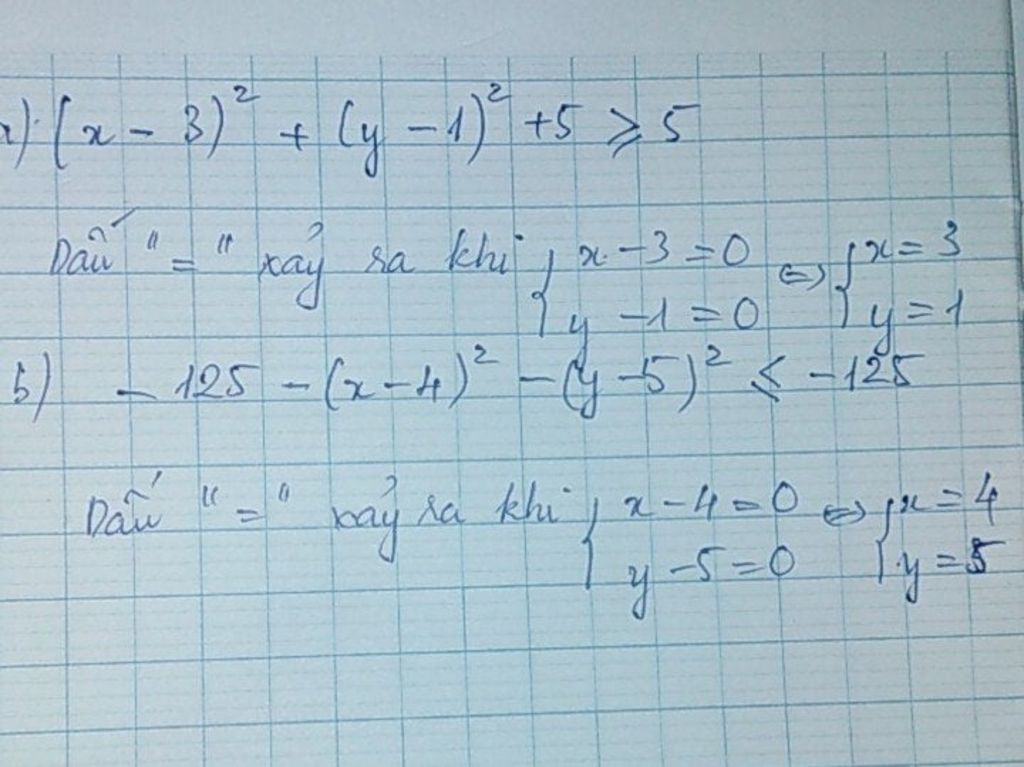 a) (x - 3)² + (y - 1)² + 5 ⩾ 5
Dấu " = " xảy ra khi { x - 3 = 0 ⇔ { x = 3
y - 1 = 0 y = 1
b) - 125 - (x - 4)² - (y - 5)² ⩽ - 125
Dấu " = " xảy ra khi { x - 4 = 0 ⇔ { x = 4
y - 5 = 0 y = 5